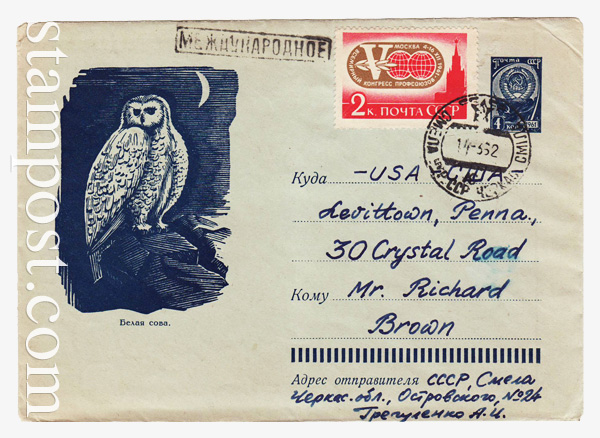 stampost.com
МЕЖДУНАРОДНОЕ
V
МОСКВА 4-16
ВСЕМИРНЫЙ КОНГРЕСС ПРОФСОЮЗОВ
2 К. ПОЧТА СССР
ПОЧТА СССР
4
14-362
Белая сова.
Куда -USA США
Levittown, Penna,
30 Crystal Road
Кому Mr. Richard
Brown
Адрес отправителя СССР, Смела
Черкас. обл., Островского, №24
Грегуленко А.И.